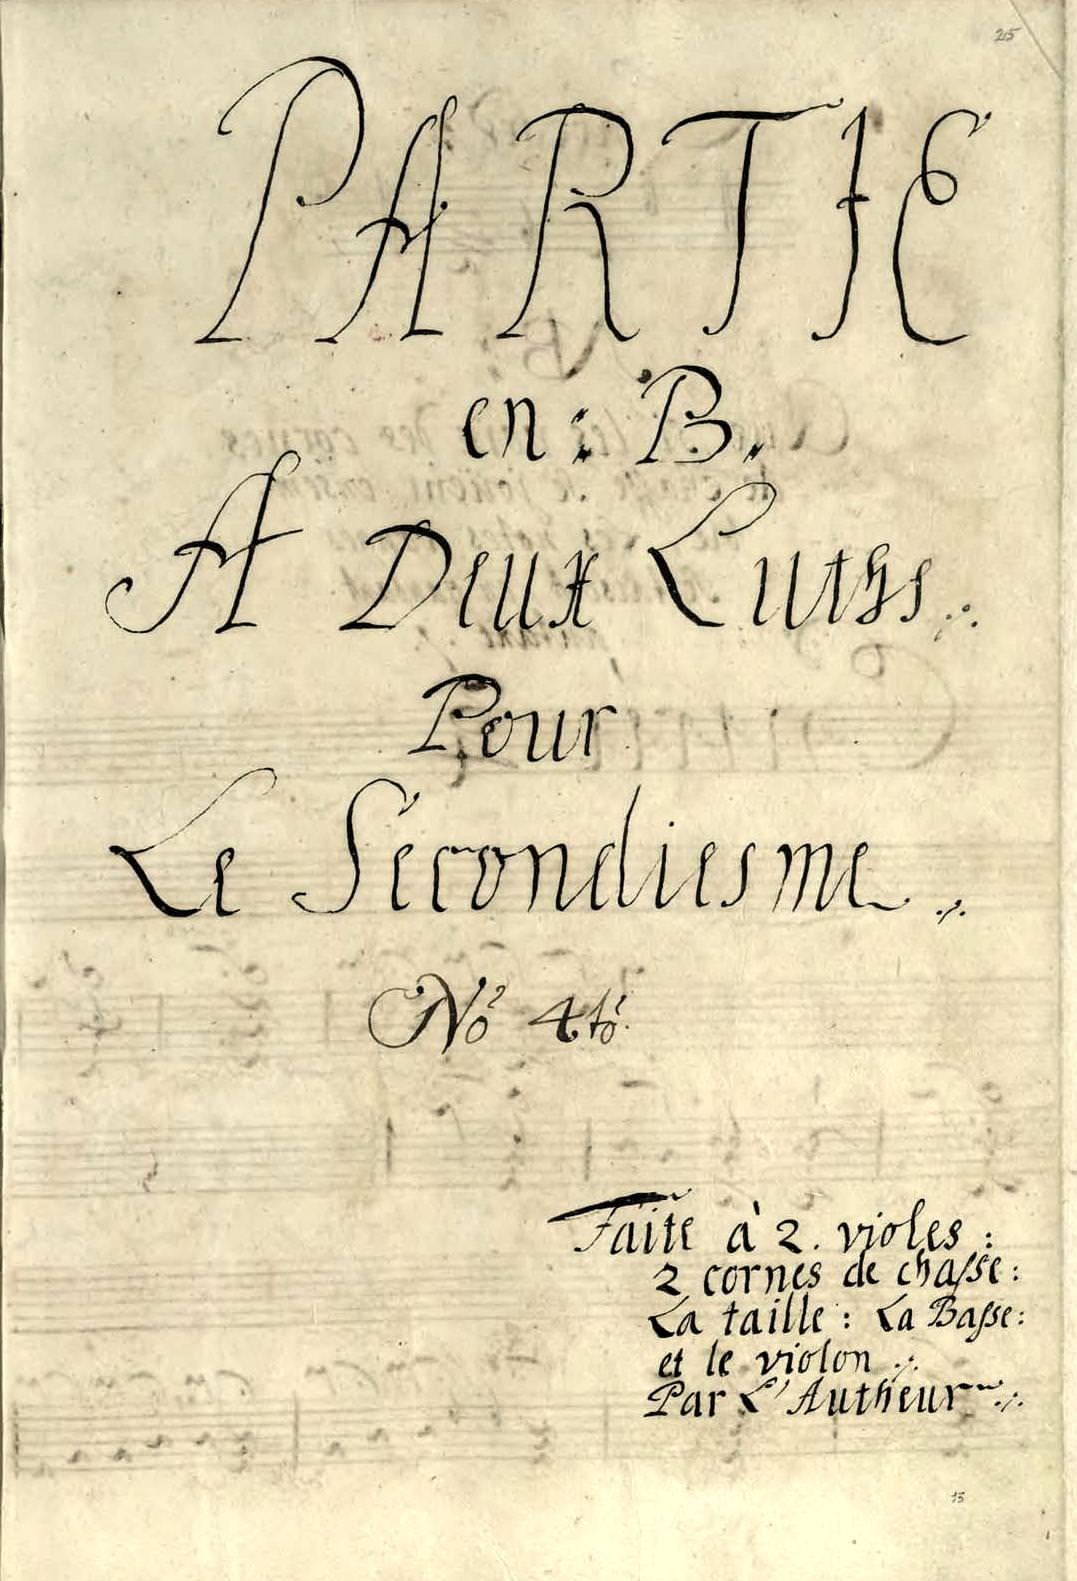 215
PARTIE
en: B.
A Deux Luths./.
Pour
Le Secondiesme ./.
No 4to.
Faite à 2. violes :
2 cornes de chasse :
La taille : La Basse :
et le violon ./.
Par L'Autheur ./.
13